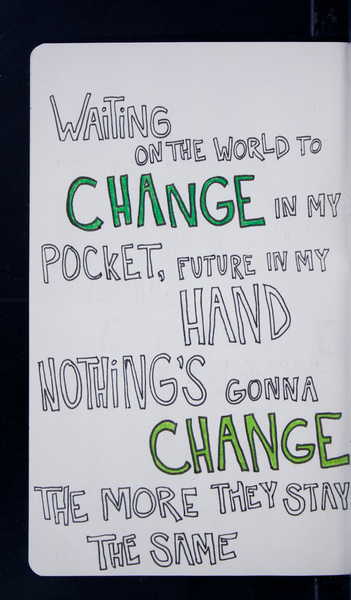 WAiTiNG
ON THE WORLD TO
CHANGE IN MY
POCKET, FUTURE IN MY
HAND
NOTHiNG'S GONNA
CHANGE
THE MORE THEY STAY
THE SAME